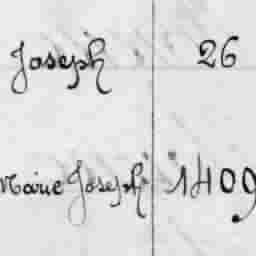 Joseph 26
Marie Joseph 1409